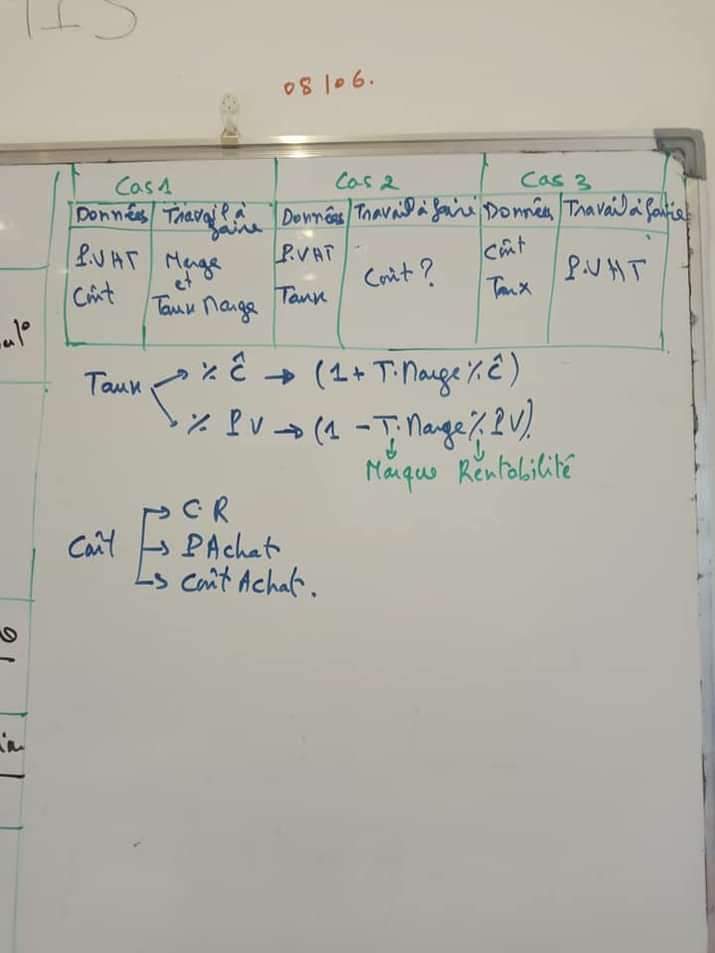 TIS
08/06.
Cas 1 Cas 2 Cas 3
Données Travail à faire Données Travail à faire Données Travail à faire
P.V HT
Coût
Marge
et
Taux Marge
P.V HT
Taux
Coût ?
Coût
Taux
P.V HT
Taux
% Ĉ → (1 + T.Marge % Ĉ)
% PV → (1 - T.Marge % PV).
Marque Rentabilité
Coût
→ C.R
→ P Achat
→ Coût Achat.